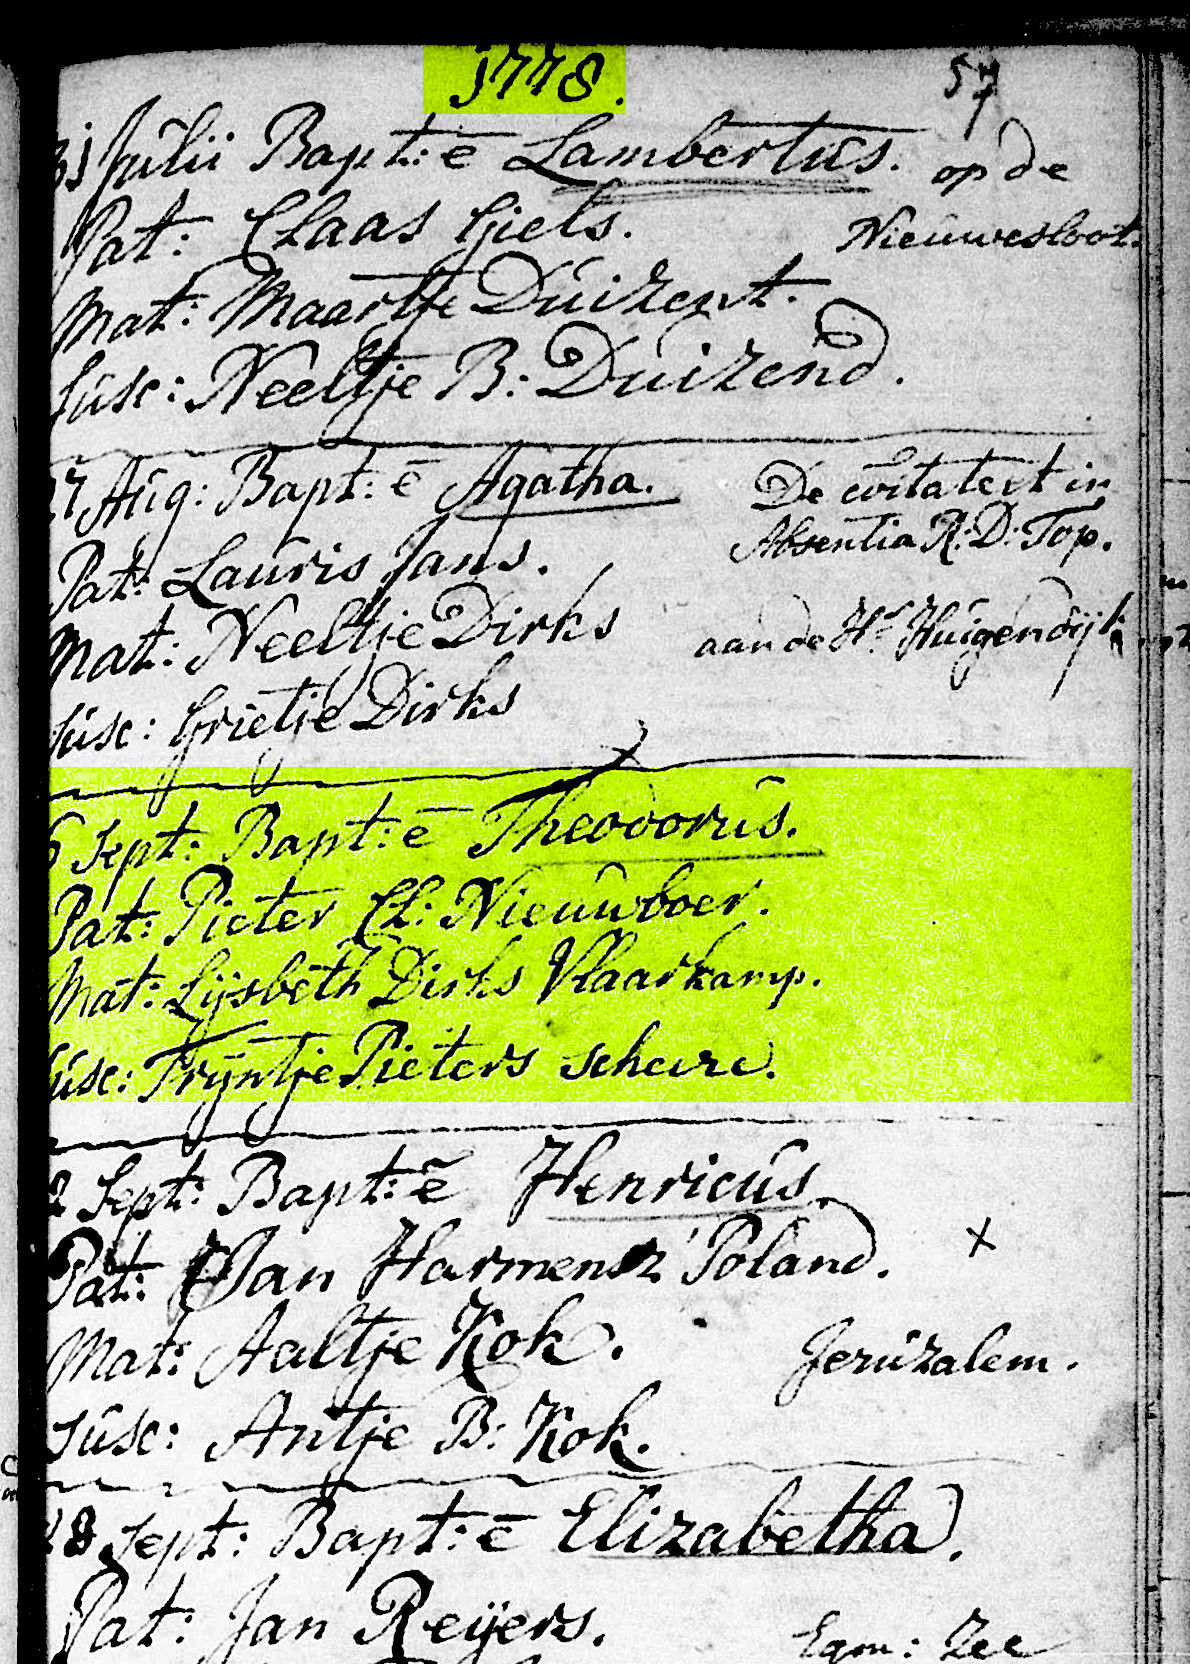 1778.
57
31 Julii Bapt: ē Lambertus. op de
Pat: Claas Giels. Nieuwesloot.
Mat: Maartje Duizent.
Susc: Neeltje B: Duizend.
27 Aug: Bapt: ē Agatha. De
Absentia R: D: Top.
Pat: Lauris Jans.
Mat: Neeltje Dirks aan de Hr. Huigendijk
Susc: Grietje Dirks
6 Sept: Bapt: ē Theodorus.
Pat: Pieter Cl: Nieuwboer.
Mat: Lijsbeth Dirks Vlaarkamp.
Susc: Trijntje Pieters
2 Sept: Bapt: ē Henricus.
Pat: Jan Harmensz Poland. x
Mat: Aaltje Kok. Jeruzalem.
Susc: Antje B: Kok.
18 Sept: Bapt: ē Elizabetha.
Pat: Jan Reÿers. Egm: Zee